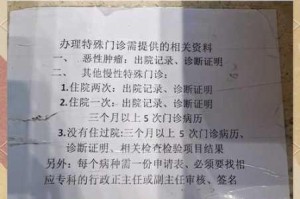 办理特殊门诊需提供的相关资料
一、 恶性肿瘤：出院记录、诊断证明
二、 其他慢性特殊门诊：
1.住院两次：出院记录、诊断证明
2.住院一次：出院记录、诊断证明
三个月以上 5 次门诊病历
3.没有住过院：三个月以上 5 次门诊病历、
诊断证明、相关检查检验项目结果
另外：每个病种需一份申请表、必须要找相
应专科的行政正主任或副主任审核、签名